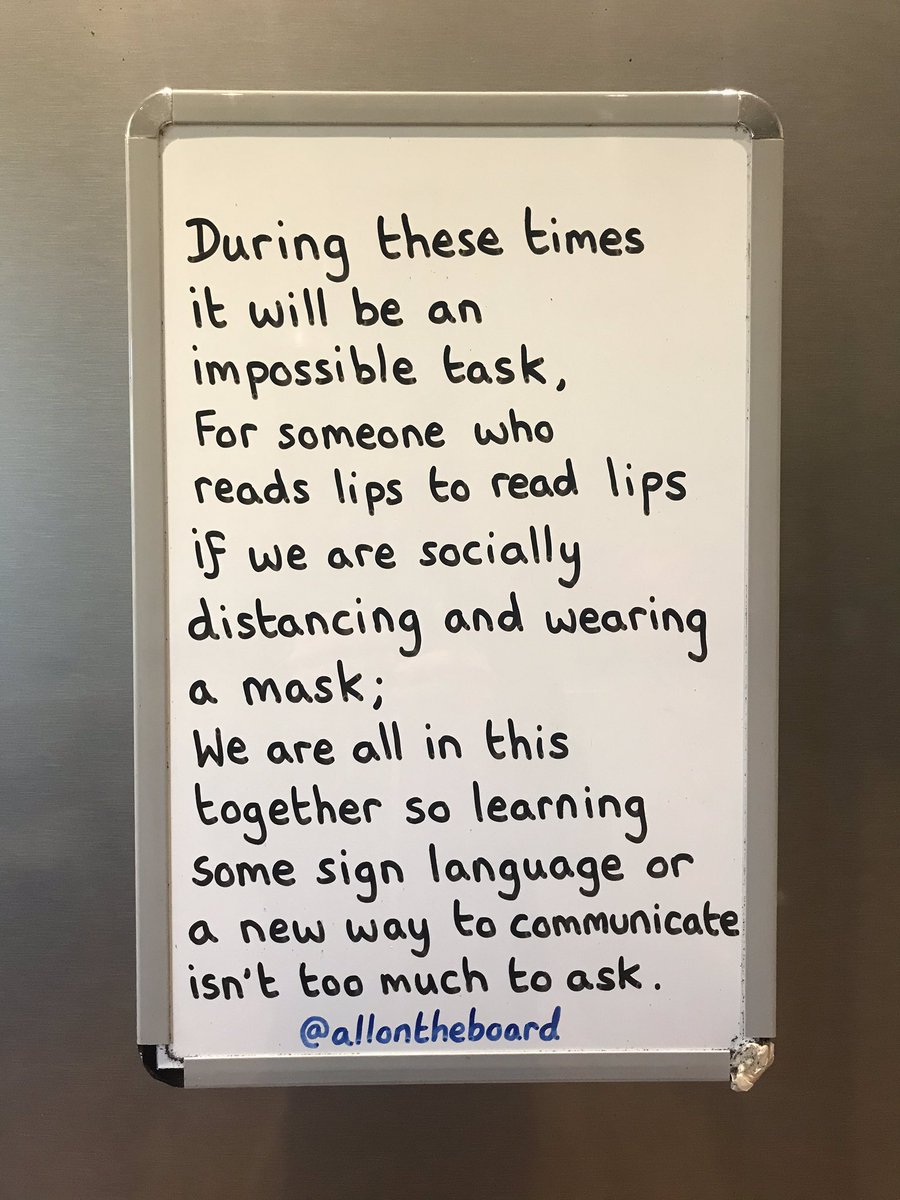 During these times
it will be an
impossible task,
For someone who
reads lips to read lips
if we are socially
distancing and wearing
a mask;
We are all in this
together so learning
some sign language or
a new way to communicate
isn't too much to ask.
@allontheboard